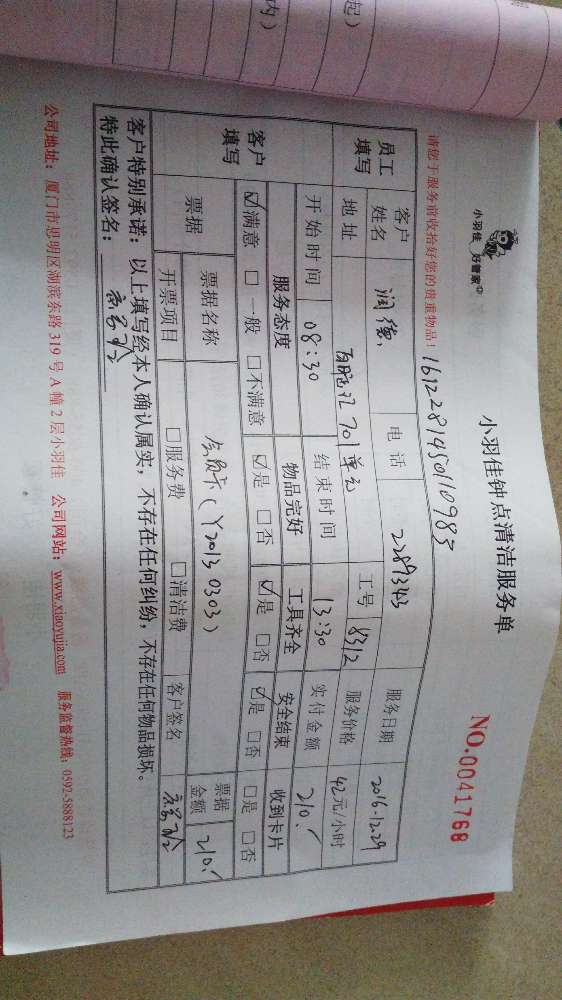 起)
内)
小羽佳 好管家
小羽佳钟点清洁服务单
NO.0041768
请您于服务前收拾好您的贵重物品!
员工填写 客户姓名 润德 电话 2289343 服务日期 2016.12.29
地址 701单元 工号 8312 服务价格 42元/小时
开始时间 08:30 结束时间 13:30 实付金额 210.
客户填写 服务态度 物品完好 工具齐全 安全结束 收到卡片
☑满意 □一般 □不满意 ☑是 □否 ☑是 □否 ☑是 □否 □是 □否
票据 票据名称 会员卡(Y20130303) 票据金额 210.
开票项目 □服务费 □清洁费 客户签名
客户特别承诺:以上填写经本人确认属实,不存在任何纠纷,不存在任何物品损坏。
特此确认签名:
公司地址:厦门市思明区湖滨东路319号A幢2层小羽佳 公司网站:www.xiaoyujia.com 服务监督热线:0592-5888123